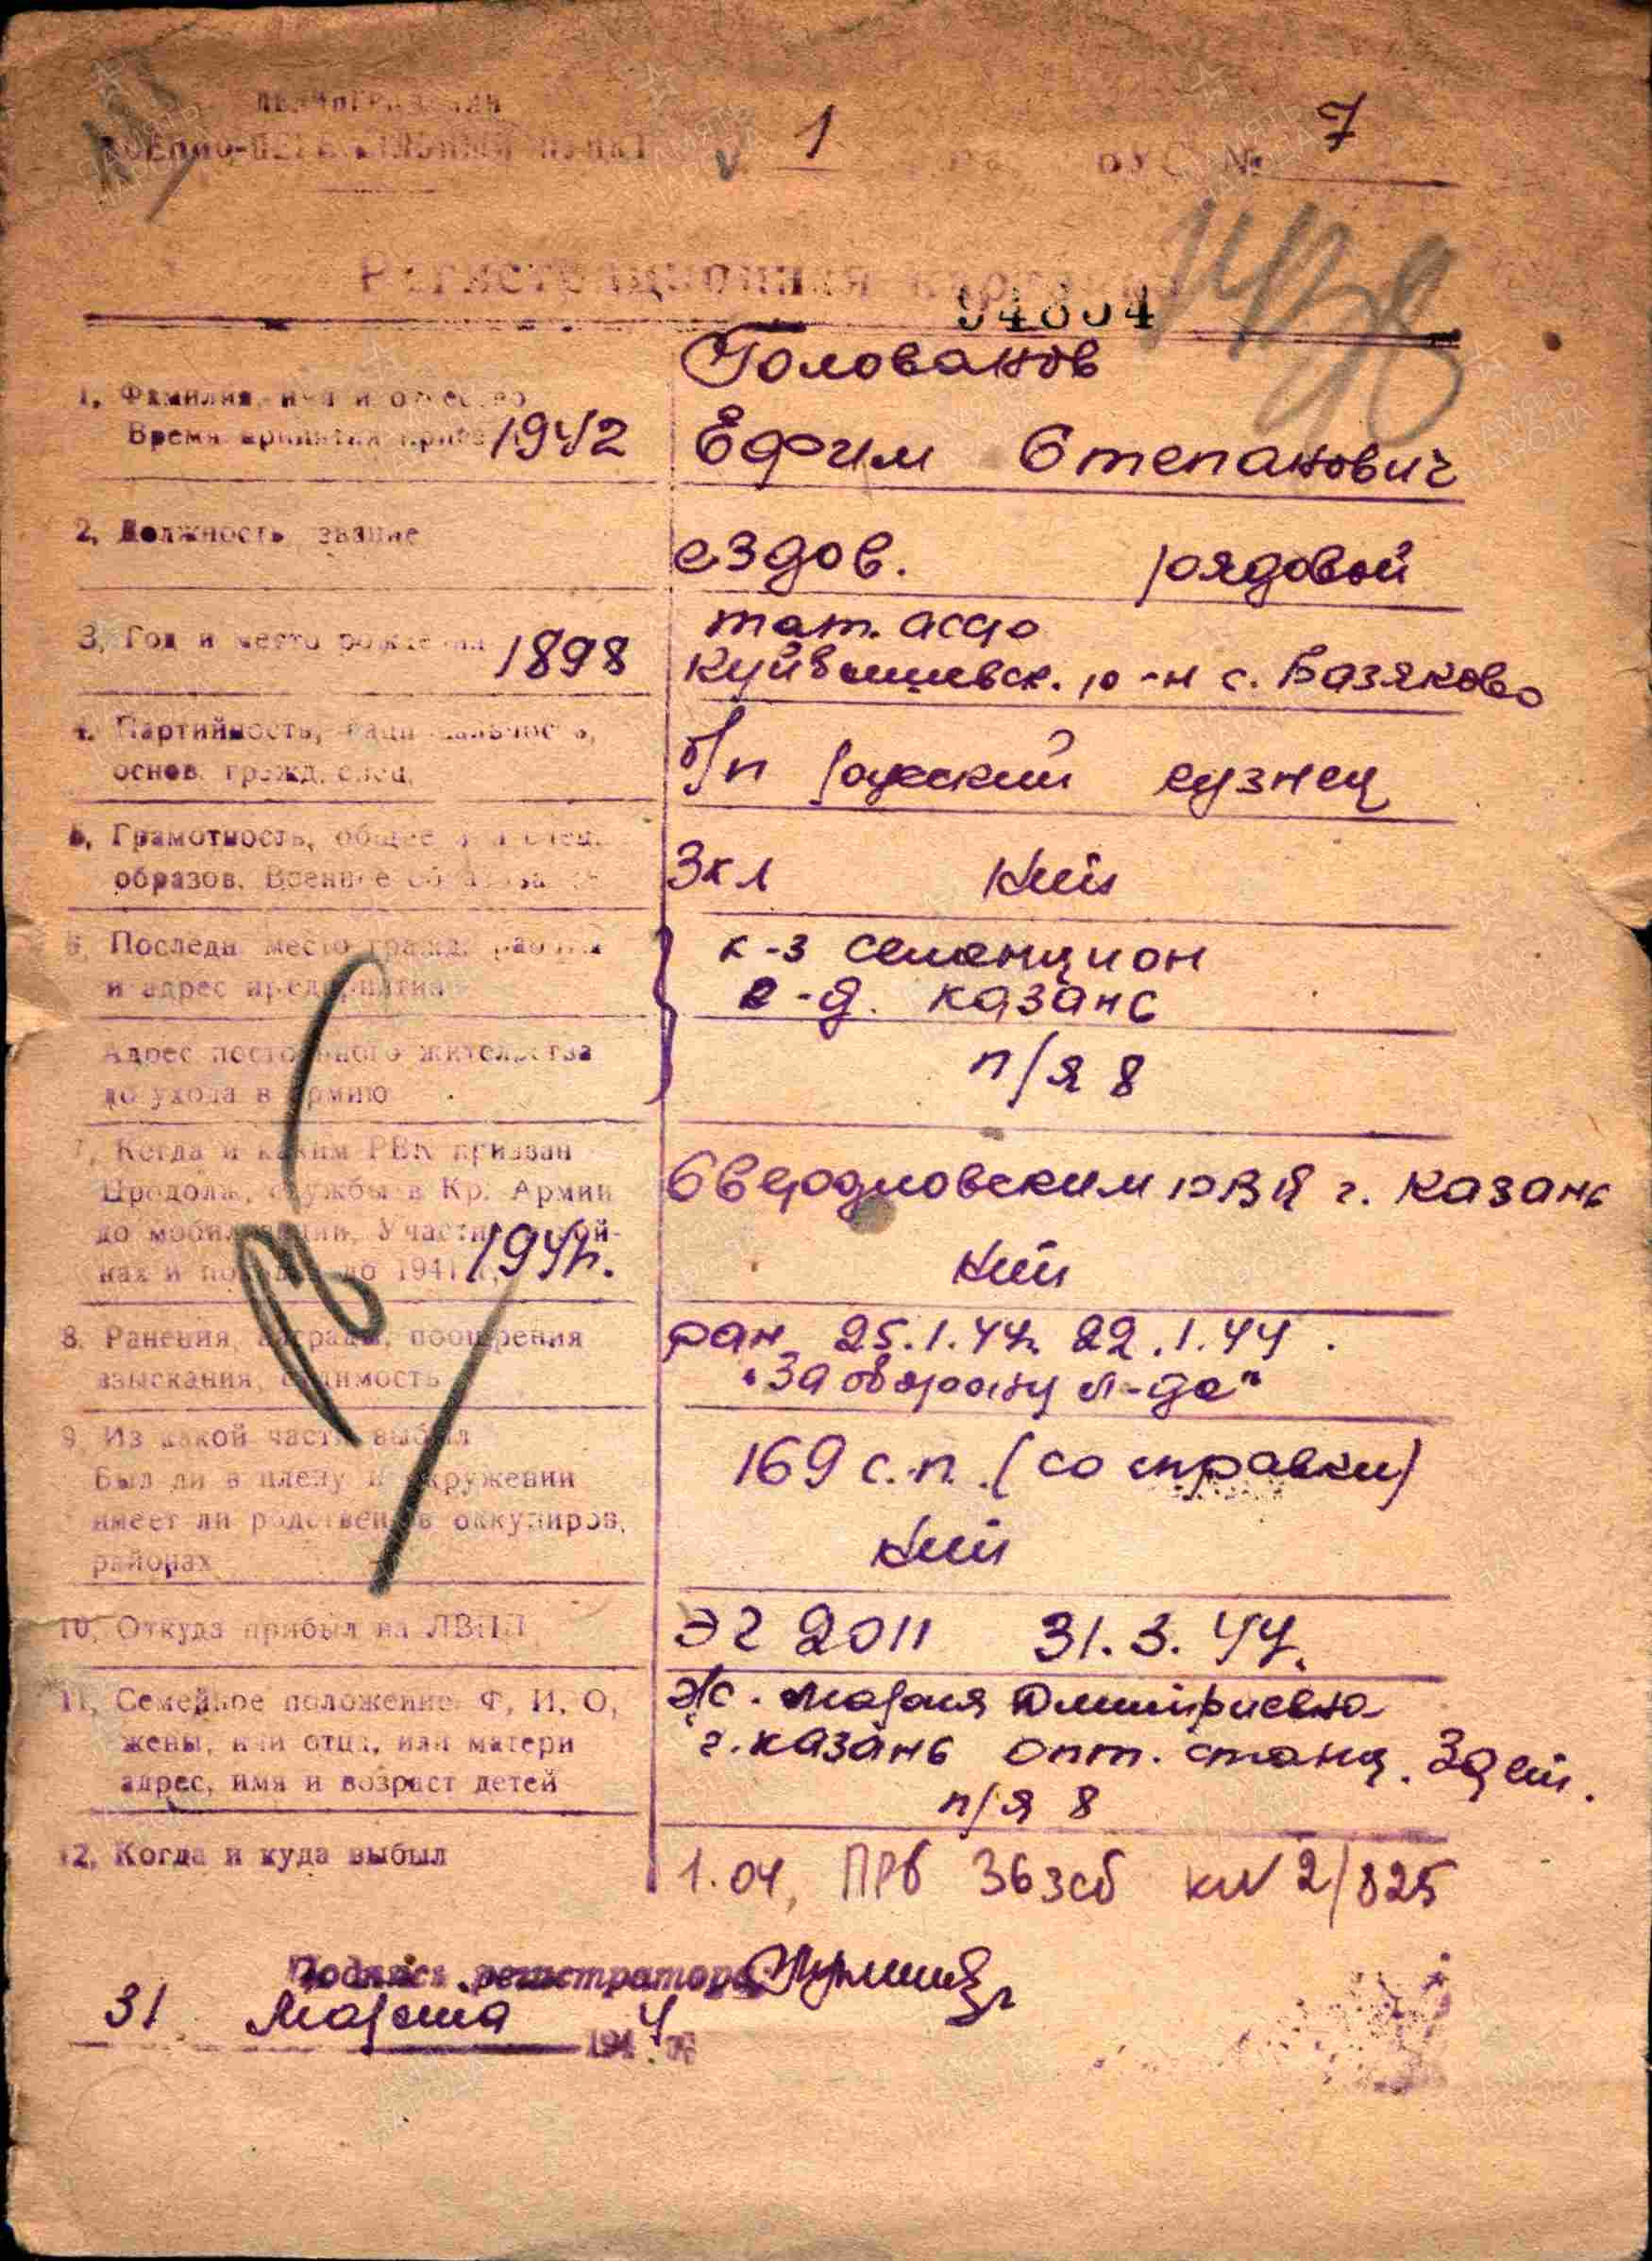 ЛЕНИНГРАДСКИЙ
ВОЕННО-ПЕРЕСЫЛЬНЫЙ ПУНКТ 1 ВУС № 7
Регистрационная карточка
94894
Голованов
1. Фамилия, имя и отчество
Время принятия присяги 1942 Ефим Степанович
2. Должность, звание ездов. рядовой
тат. асср
3. Год и место рождения 1898 Куйбышевск. р-н с. Базяково
4. Партийность, национальность, б/п русский кузнец
основ. гражд. спец.
5. Грамотность, общее и спец.
образов. Военное образование 3 кл Нет
6. Последн. место гражд. работы к-з
и адрес предприятия г-д. Казань
Адрес постоянного жительства п/я 8
до ухода в армию
7. Когда и каким РВК призван
Продолж. службы в Кр. Армии Свердловским РВК г. Казань
до мобилизации. Участие в вой-
нах и походах до 1941 г. 1941г. Нет
8. Ранения, награды, поощрения ран 25.1.44г. 22.1.44.
взыскания, судимость "За оборону Л-да"
9. Из какой части выбыл 169 с.п. (со справки)
Был ли в плену и окружении
имеет ли родственников в оккупиров. Нет
районах
10. Откуда прибыл на ЛВПП ЭГ 2011 31.3.44.
11. Семейное положение Ф, И, О, ж. Мария Дмитриевна
жены, или отца, или матери г. Казань опт. станц. 3 дет.
адрес, имя и возраст детей п/я 8
12. Когда и куда выбыл 1.04, ПРб 36 зсб к№ 2/825
Подпись регистратора
31 Марта 1944 г.